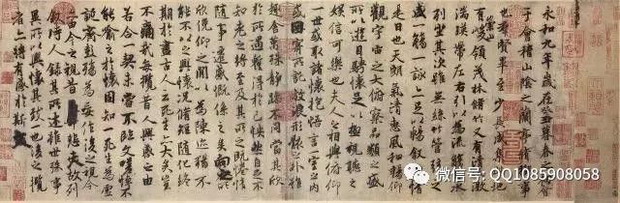 永和九年歲在癸丑暮春之初會
于會稽山陰之蘭亭脩稧事
也羣賢畢至少長咸集此地
有峻領茂林脩竹又有清流激
湍暎帶左右引以為流觴曲水
列坐其次雖無絲竹管弦之
盛一觴一詠亦足以暢敘幽情
是日也天朗氣清惠風和暢仰
觀宇宙之大俯察品類之盛
所以遊目騁懷足以極視聽之
娛信可樂也夫人之相與俯仰
一世或取諸懷抱悟言一室之內
或因寄所託放浪形骸之外雖
趣舍萬殊靜躁不同當其欣
於所遇暫得於己怏然自足不
知老之將至及其所之既惓情
隨事遷感慨係之矣向之所
欣俛仰之閒以為陳迹猶不
能不以之興懷況脩短隨化終
期於盡古人云死生亦大矣豈
不痛哉每攬昔人興感之由
若合一契未嘗不臨文嗟悼不
能喻之於懷固知一死生為虛
誕齊彭殤為妄作後之視今
亦由今之視昔悲夫故列
敘時人錄其所述雖世殊事
異所以興懷其致一也後之攬
者亦將有感於斯文
微信号: QQ1085908058